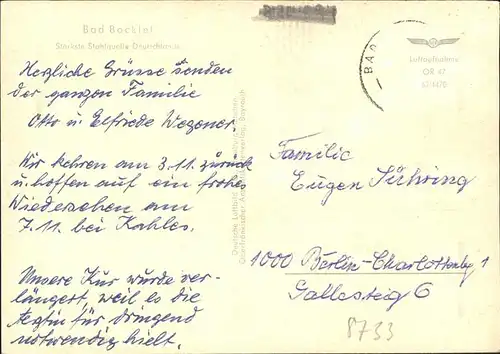 Bad Bocklet
Stärkste Stahlquelle Deutschlands
Herzliche Grüsse senden
der ganzen Familie
Otto u. Elfriede Wegener
Wir kehren am 3.11. zurück
u. hoffen auf ein frohes
Wiedersehen am
7.11. bei Kahles.
Unsere Kur wurde ver-
längert, weil es die
Ärztin für dringend
notwendig hielt.
BAD
Luftaufnahme
Familie
Eugen Sühring
1000 Berlin-Charlottenbg 1
Gallesteig 6
8733